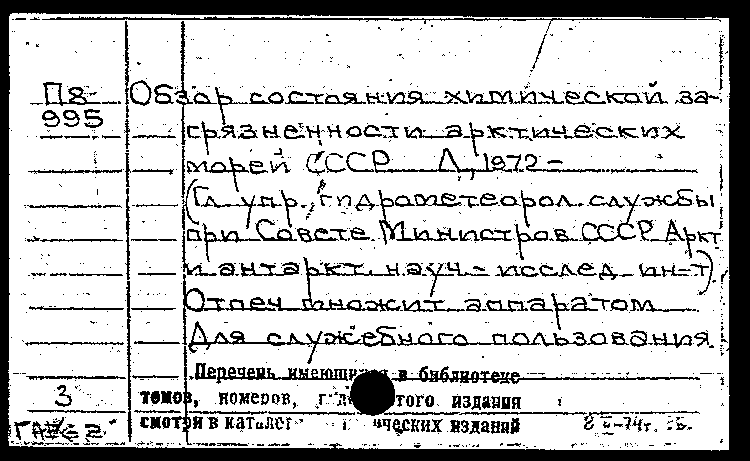 П8-
995
Обзор состояния химической за-
грязненности арктических
морей СССР Л., 1972 -
(Гл. упр. гидрометеорол. службы
при Совете Министров СССР Аркт
и антаркт. науч-исслед. ин-т)
Отпеч множит аппаратом
Для служебного пользования.
Перечень имеющихся в библиотеке
томов, номеров, этого издания
смотри в каталоге ических изданий
3